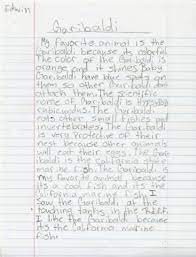 Edwin
Garibaldi
My favorite animal is the
Garibaldi because its colorful.
The color of the Garibaldi is
orange and it shines. Baby
Garibaldi have blue spots on
them so other Garibaldi dont
attach them. The scientific
name of Garibaldi is Hypsypops
rubicundus. The Garibaldi
eats other small fishes and
invertebrates. The Garibaldi
is very protective of their
nest because other animals
will eat their eggs. The Gari
baldi is the california state
marine fish. The Garibaldi is
my favorite animal because
its a cool fish and its the
California marine fish. I
saw the Garibaldi at the
touching tanks in the
I like the Garibaldi because
its the California marine
fish.